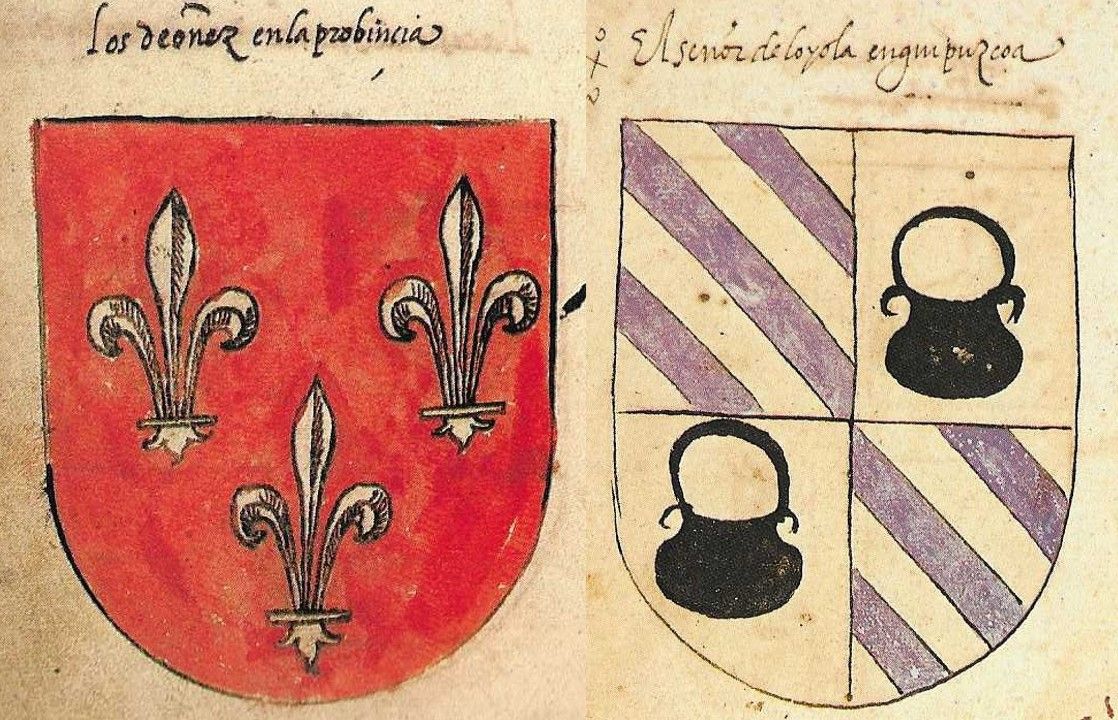 los deoñez enlaprobinçia
El señor deloyola enguipuzcoa